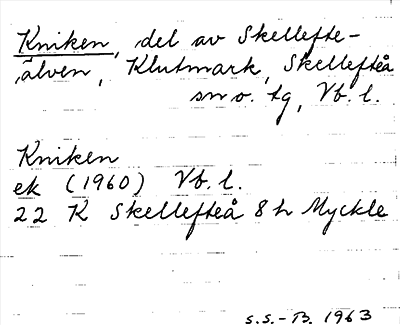 Kniken, del av Skellefte-
älven, Klutmark, Skellefteå
sn o. tg, Vb. l.
Kniken
ek (1960) Vb. l.
22 K Skellefteå 8 h Myckle
S.S.-B. 1963